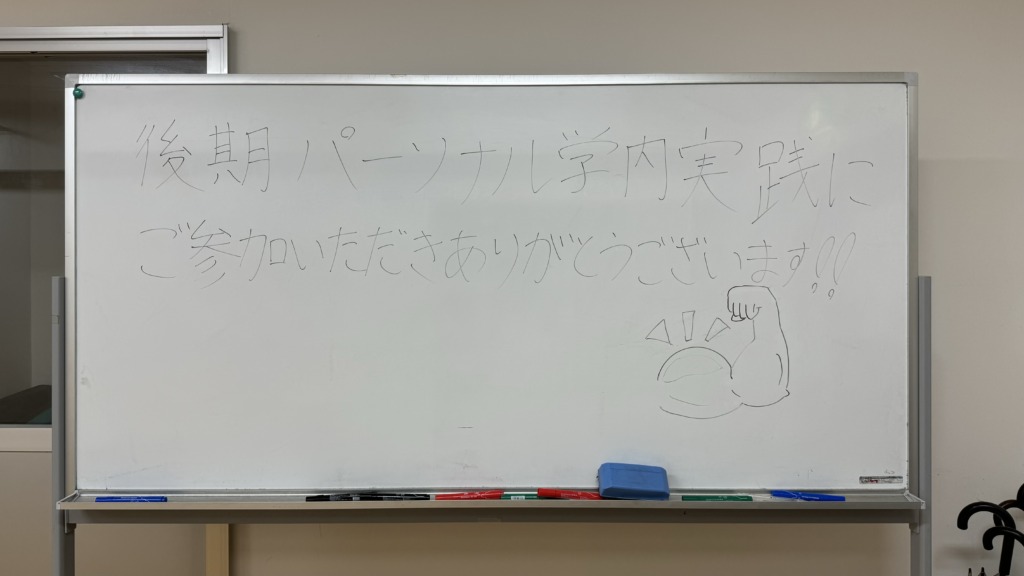 後期 パーソナル学内実践に
ご参加いただきありがとうございます!!